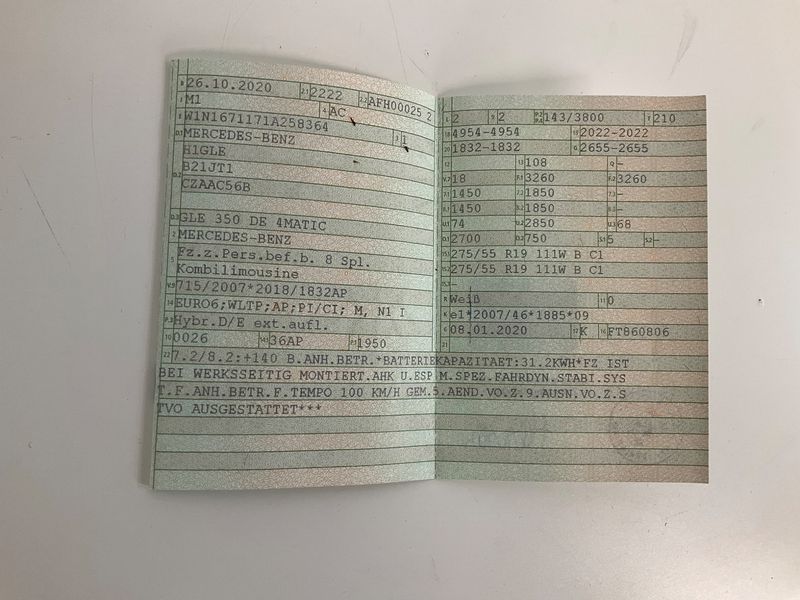 B 26.10.2020 2.1 2222 2.2 AFH00025 2
J M1 4 AC
E W1N1671171A258364 3 1
D.1 MERCEDES-BENZ
H1GLE
D.2 B21JT1
CZAAC56B
D.3 GLE 350 DE 4MATIC
2 MERCEDES-BENZ
5 Fz.z.Pers.bef.b. 8 Spl.
Kombilimousine
V.9 715/2007*2018/1832AP
14 EURO6;WLTP;AP;PI/CI; M, N1 I
P.3 Hybr.D/E ext.aufl.
10 0026 14.1 36AP P.1 1950
L 2 9 2 P.2 P.4 143/3800 T 210
18 4954-4954 19 2022-2022
20 1832-1832 G 2655-2655
12 13 108 Q -
V.7 18 F.1 3260 F.2 3260
7.1 1450 7.2 1850 7.3 -
8.1 1450 8.2 1850 8.3 -
U.1 74 U.2 2850 U.3 68
O.1 2700 O.2 750 S.1 5 S.2 -
15.1 275/55 R19 111W B C1
15.2 275/55 R19 111W B C1
15.3 -
R Weiß 11 0
K e1*2007/46*1885*09
6 08.01.2020 17 K 16 FT860806
21
22 7.2/8.2:+140 B.ANH.BETR.*BATTERIEKAPAZITAET:31.2KWH*FZ IST
BEI WERKSSEITIG MONTIERT.AHK U.ESP M.SPEZ.FAHRDYN.STABI.SYS
T.F.ANH.BETR.F.TEMPO 100 KM/H GEM.5.AEND.VO.Z.9.AUSN.VO.Z.S
TVO AUSGESTATTET***